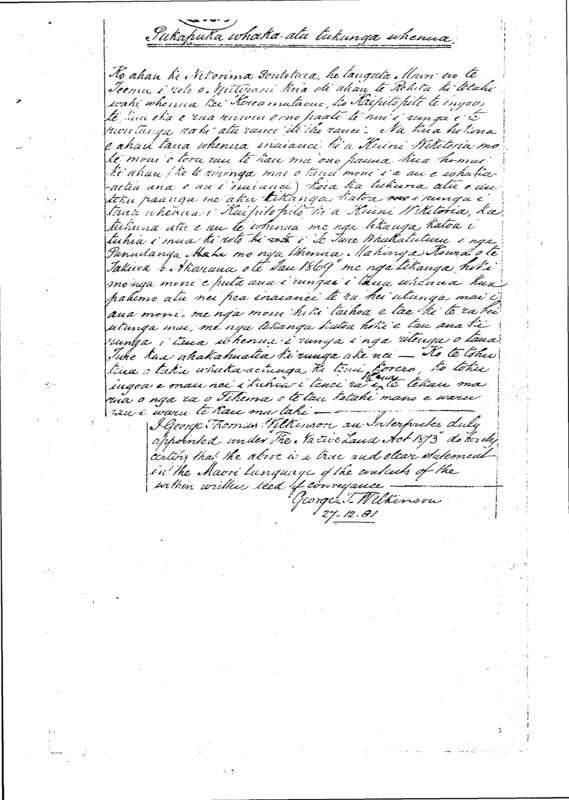 Pukapuka whaka-atu tukunga whenua.
Ko ahau ki he tangata Maori no te
Teemu i roto o Niu Tirani kua oti ahau te Rehita ki tetahi
wahi whenua kei ko Kaipitopito te ingoa
e rua ruuri e ono paati te noni i runga i te
rahi atu ranei iti iho ranei. Na kua hokona
e ahau taua whenua inaianei ki a Kuini Wikitoria mo
te moni e toru rau te kau ma ono pauna kua homai
ki ahau (ko te riringa mai o taua moni i a au e whakaa-
-aetia ana e au i inaianei) koia ka tukuna atu e au
toku paanga me aku tikanga katoa i runga i
taua whenua i Kaipitopito ki a Kuini Wikitoria, ka
tukuna atu e au te whenua me nga tikanga katoa i
tuhia i mua ki roto ki i te Ture Whakatuturu i nga
mo nga Whenua Maringa o te
Takiwa o Akarana o te Tau 1869" me nga tikanga hoki
mo nga moni e puta ana i runga i taua whenua kua
pahemo atu nei pea inaianei te ra hei utunga mai i
aua moni, me nga moni hoki taihoa e tae ki te ra hei
utunga mai, me nga tikanga katoa hoki e tau ana ki
runga i taua whenua i runga i nga ritenga o taua
Ture kua whakahuatia ki runga ake nei — Ko te tohu
tena o tuku whaka-aetunga ki tenei korero, ko toku
ingoa e mau nei i tuhia i tenei ra te tekau ma
rua o nga ra o Tihema o te tau kotahi mano e waru
rau e waru te kau ma tahi —
I George Thomas Wilkinson an Interpreter duly
appointed under The Native Land Act 1873 do hereby
certify that the above is a true and clear statement
in the Maori language of the contents of the
within written deed of conveyance —
George T. Wilkinson
27-12-81